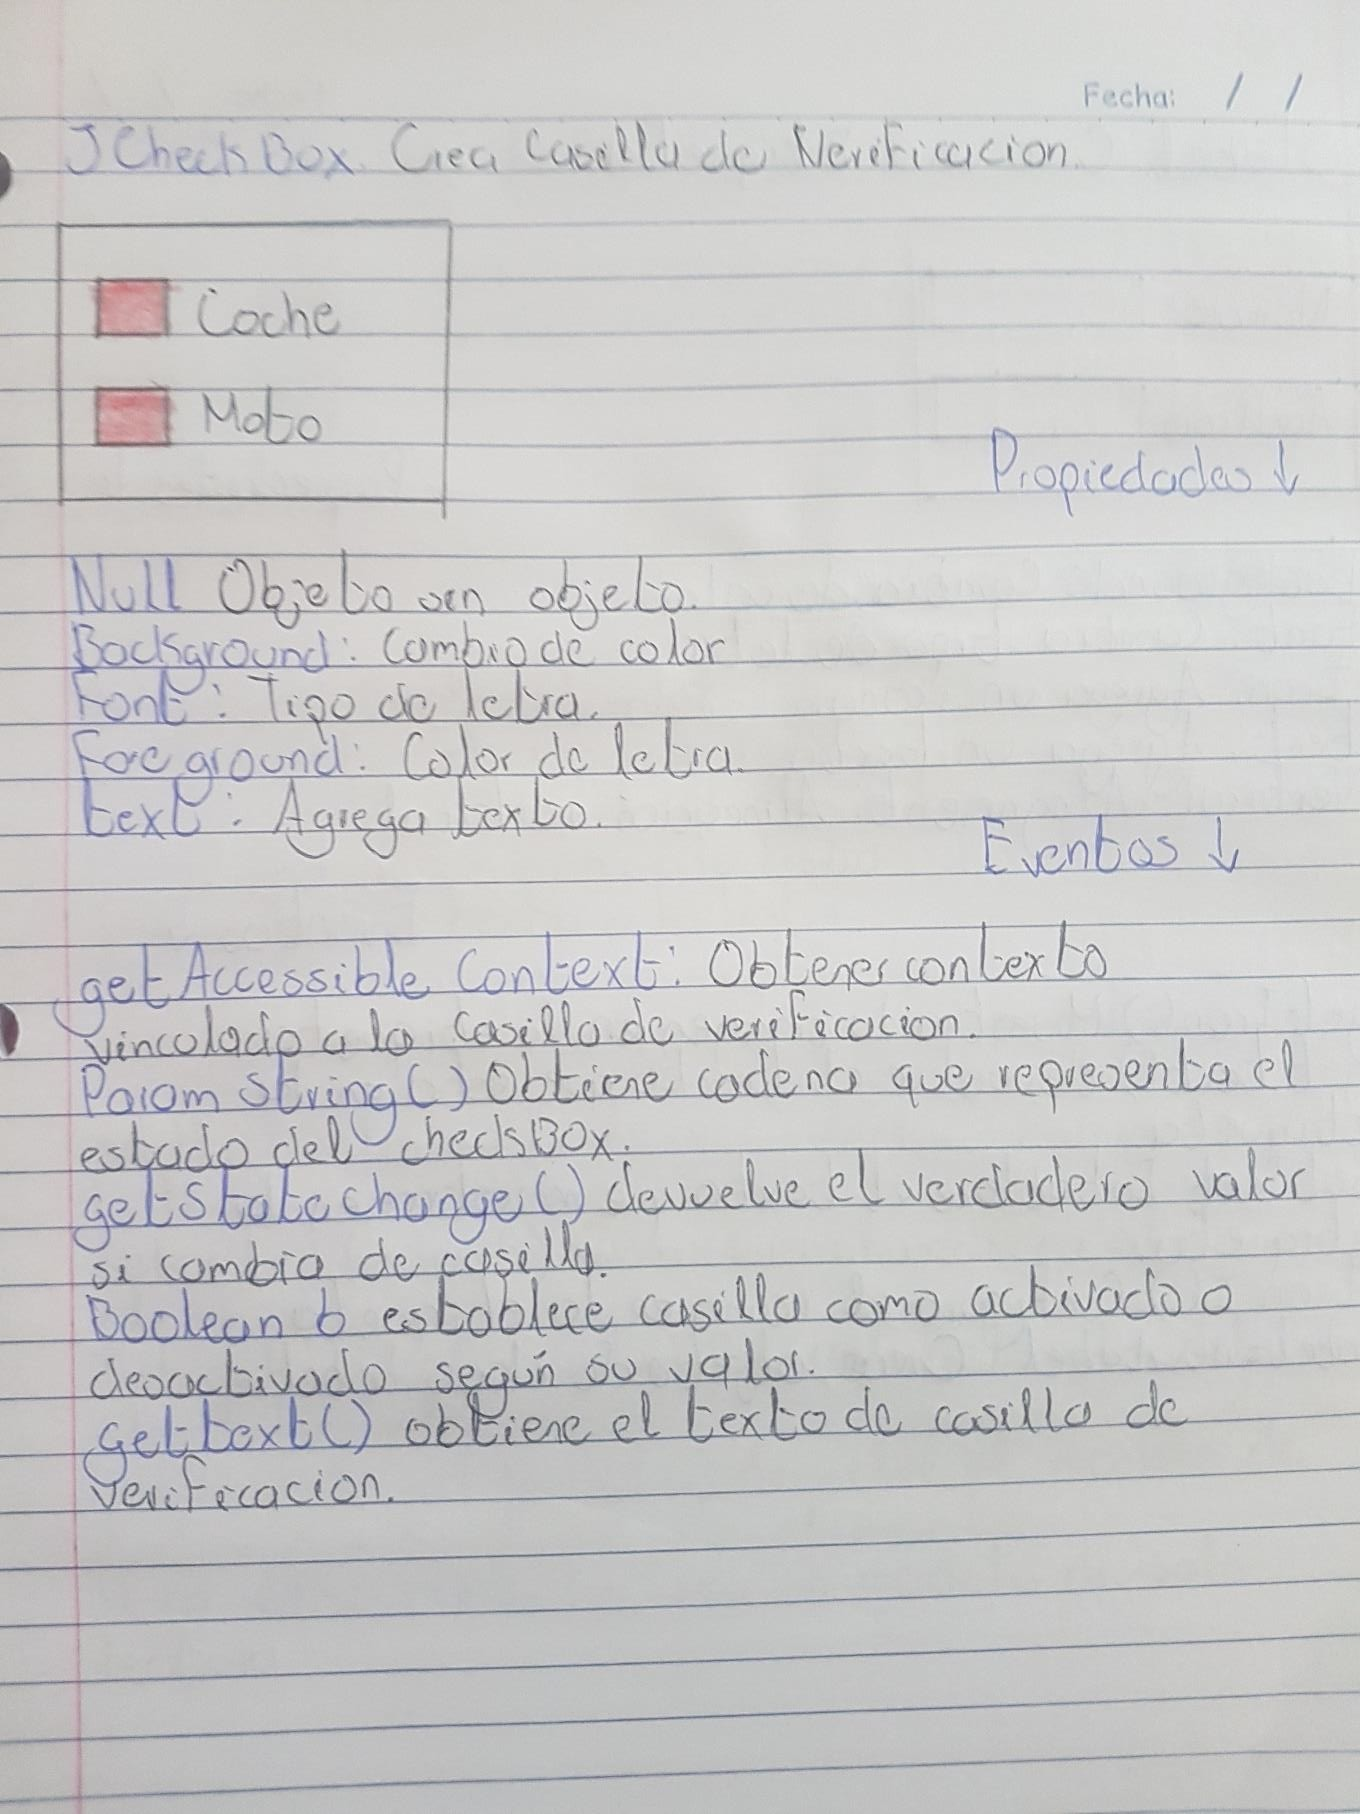 Fecha: / /
JCheckBox. Crea Casilla de Verificacion.
Coche
Moto
Propiedades ↓
Null Objeto sin objeto.
Background: Cambio de color
Font: Tipo de letra.
Foreground: Color de letra.
text: Agrega texto.
Eventos ↓
getAccessible Context: Obtener contexto
vinculado a la casilla de verificacion.
Param String() Obtiene cadena que representa el
estado del checkBox.
getStateChange() devuelve el verdadero valor
si cambia de casilla.
Boolean b establece casilla como activado o
desactivado según su valor.
gettext() obtiene el texto de casilla de
verificacion.